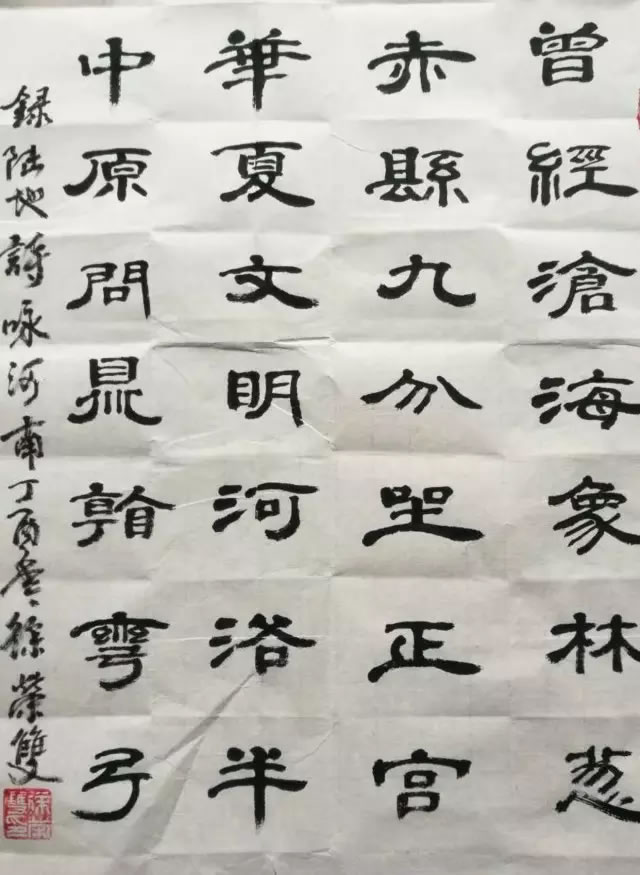 曾經滄海象林葱
赤縣九分坐正宫
華夏文明河洛半
中原問鼎彎弓
録陸地詩咏河南丁酉徐榮雙